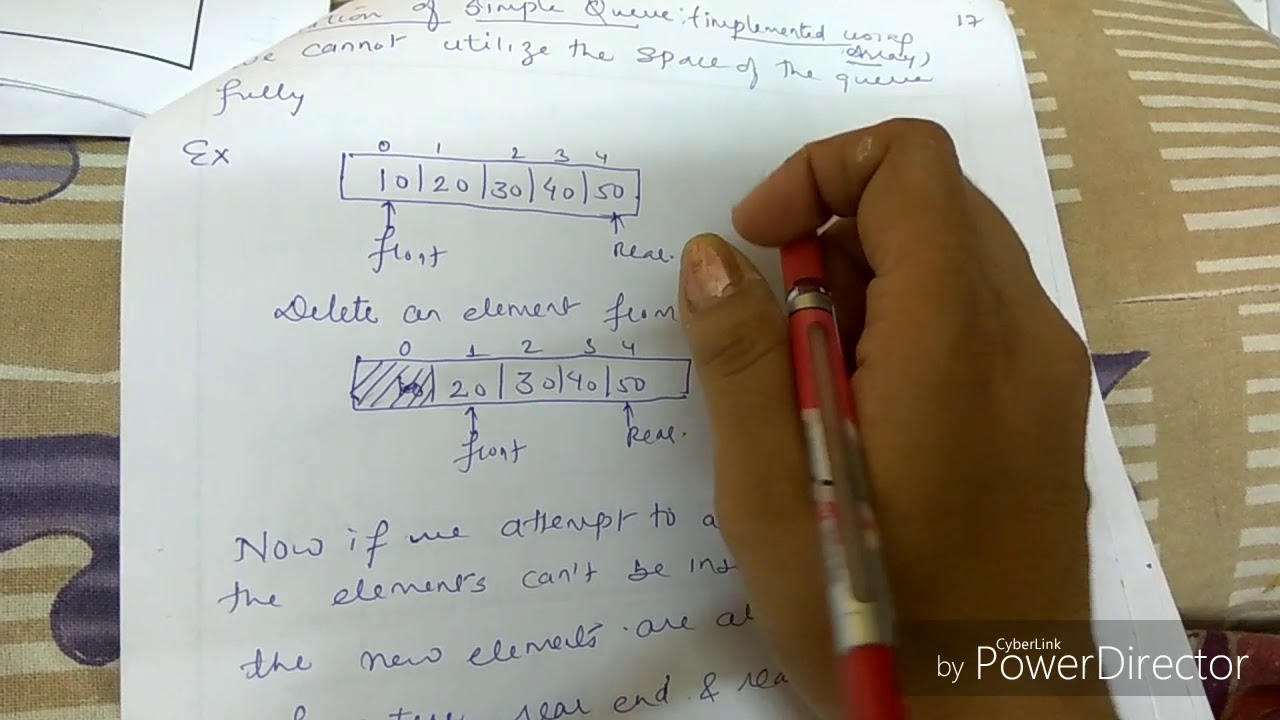 of Simple Queue: (implemented using 17
array)
we cannot utilize the space of the queue
fully
Ex
0 1 2 3 4
10 20 30 40 50
front Rear.
Delete an element from
0 1 2 3 4
10 20 30 40 50
front Rear.
Now if we attempt to a
the elements can't be ins
the new elements are al
rear end & rea
CyberLink
by PowerDirector